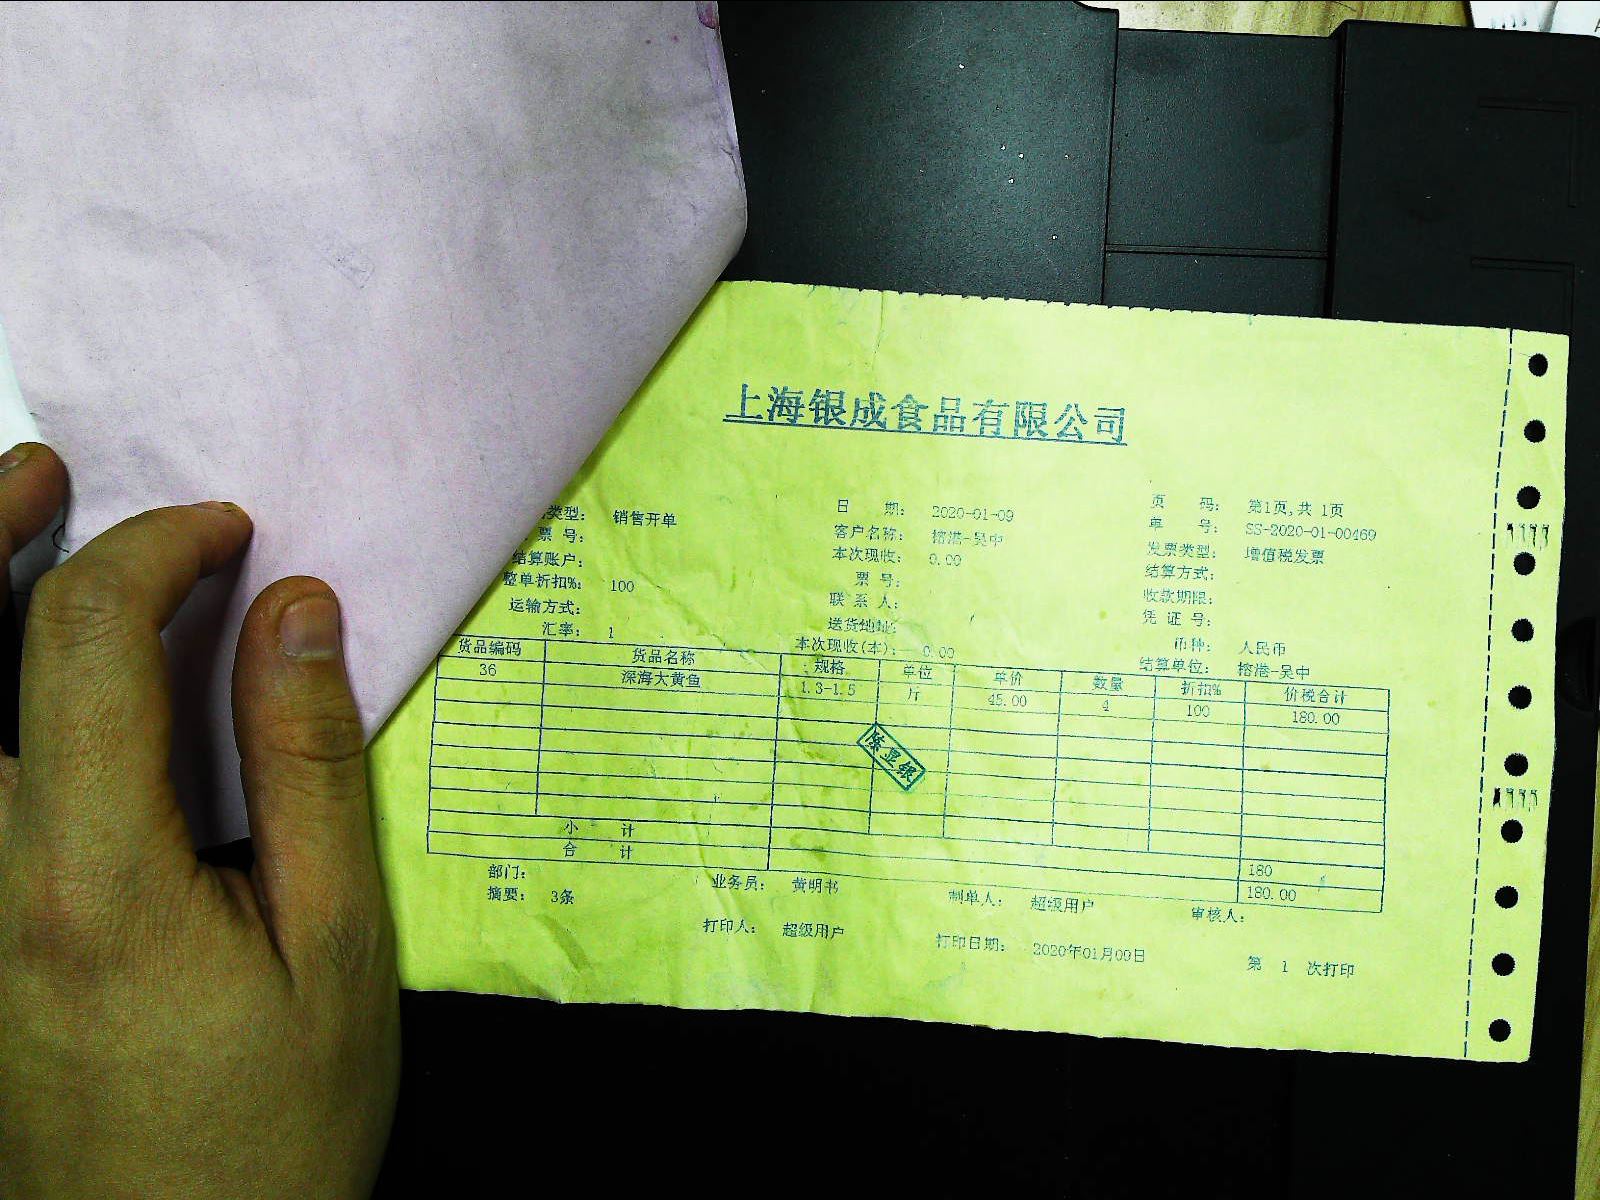 上海银成食品有限公司
类型： 销售开单 日 期： 2020-01-09 页 码： 第1页,共 1页
票 号： 客户名称： 榕港-吴中 单 号： SS-2020-01-00469
结算账户： 本次现收： 0.00 发票类型： 增值税发票
整单折扣%： 100 票 号： 结算方式：
运输方式： 联 系 人： 收款期限：
汇率： 1 送货地址： 凭 证 号：
本次现收(本)： 0.00 币种： 人民币
结算单位： 榕港-吴中
货品编码 货品名称 规格 单位 单价 数量 折扣% 价税合计
36 深海大黄鱼 1.3-1.5 斤 45.00 4 100 180.00
陈显银
小 计 180
合 计 180.00
部门： 业务员： 黄明书 制单人： 超级用户 审核人：
摘要： 3条
打印人： 超级用户 打印日期： 2020年01月09日 第 1 次打印